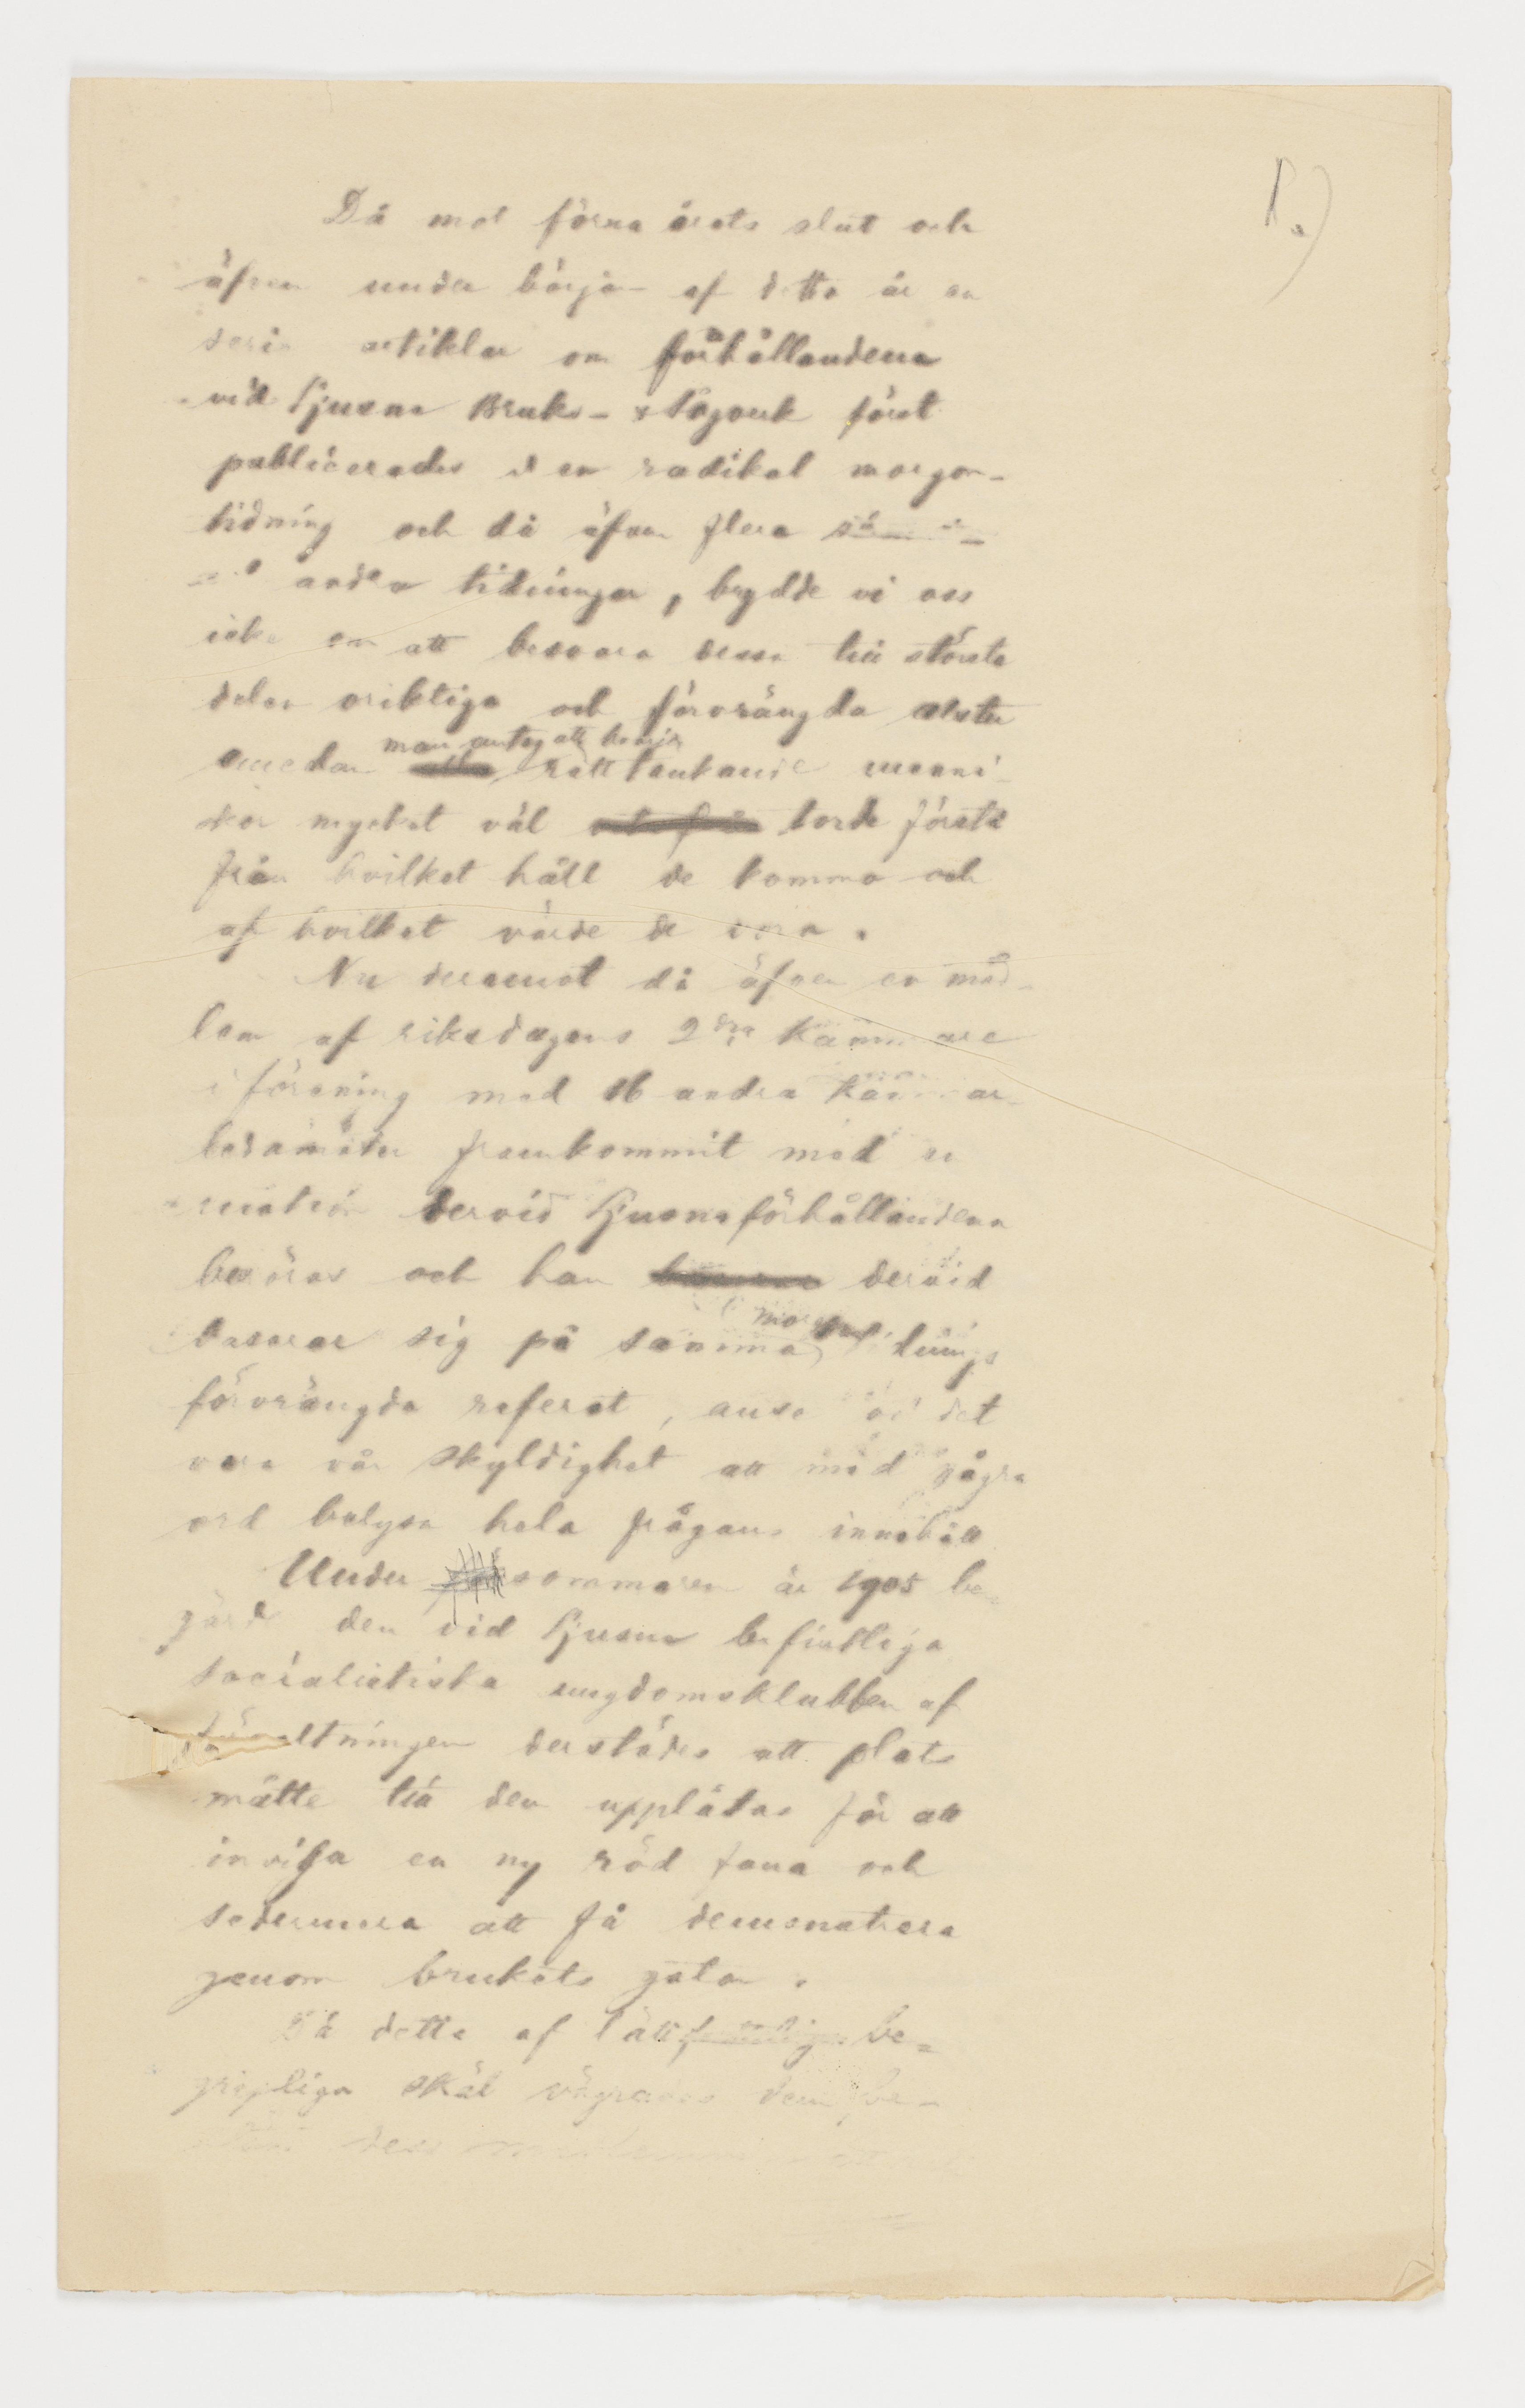 1.)
Då mot förra årets slut och
äfven under början af detta år en
serie artiklar om förhållandena
vid Ljusne Bruks- & Sågverk först
publicerades i en radikal morgon-
tidning och då äfven flera
andra tidningar, brydde vi oss
icke om att besvara dessa till största
delen oriktiga och förvrängda alster
man antog att hvarje
emedan rättänkande menni-
skor mycket väl torde förstå
från hvilket håll de komma och
af hvilket värde de voro.
Nu deremot då äfven en med-
lem af riksdagens 2dra Kammare
i förening med 16 andra Kammar-
ledamöter framkommit med en
motion dervid Ljusneförhållandena
beröras och han dervid
morgon
baserar sig på samma tidnings
förvrängda referat, anse vi det
vara vår skyldighet att med några
ord belysa hela frågans innehåll
Under sommaren år 1905 be-
gärde den vid Ljusne befintliga
socialistiska ungdomsklubben af
förvaltningen derstädes att plats
måtte till den upplåtas för att
inviga en ny röd fana och
sedermera att få demonstrera
genom brukets gator.
Då detta af lätt be-
gripliga skäl vägrades dem be-